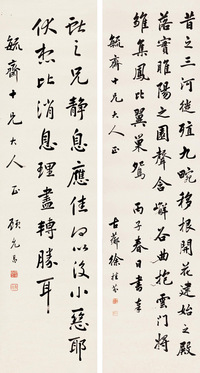 昔之三河徙殖九畹移根開花建始之殿
落實睢陽之園聲含嶰谷曲抱雲門將
雛集鳳比翼巢鴛 丙子春日書奉
毓齋十兄大人正 徐
之兄靜息應佳何以復小惡耶
伏想比消息理盡轉勝耳
毓齋十兄大人正 顧元